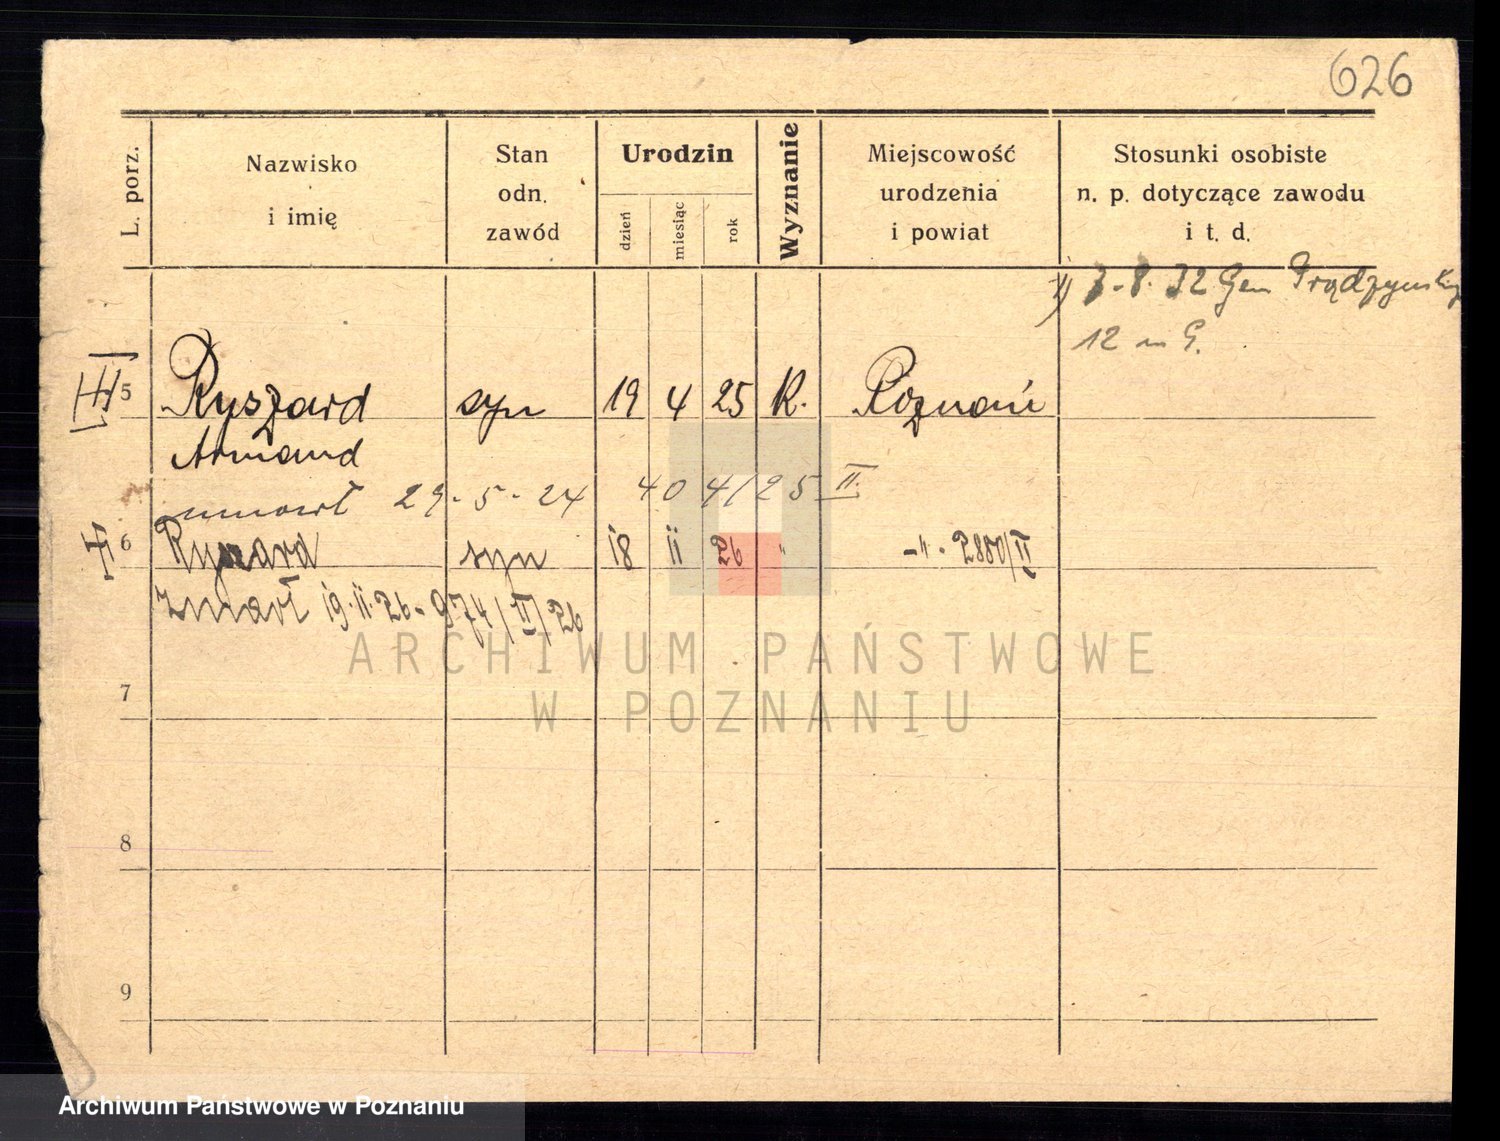 626
L. porz.
Nazwisko
i imię
Stan
odn.
zawód
Urodzin
dzień
miesiąc
rok
Wyznanie
Miejscowość
urodzenia
i powiat
Stosunki osobiste
n. p. dotyczące zawodu
i t. d.
7.8.32 Gen Prądzyńskiego
12 m G.
5 Ryszard syn 19 4 25 R. Poznań
Armand
umarł 29.5.24 404/25 II.
6 Ryszard syn 18 11 26 " -"- 2880/II
zmarł 19.11.26. 974/II/26
7
8
9
ARCHIWUM PAŃSTWOWE
W POZNANIU
Archiwum Państwowe w Poznaniu